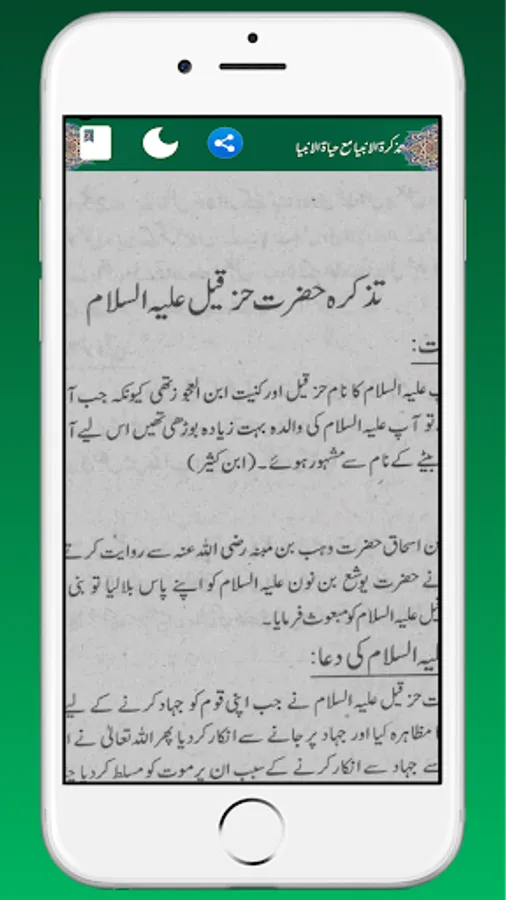 تذکرۃ الانبیا مع حیاۃ الانبیا
تذکرہ حضرت حزقیل علیہ السلام
ت:
پ علیہ السلام کا نام حزقیل اور کنیت ابن العجوز تھی کیونکہ جب آ
تو آپ علیہ السلام کی والدہ بہت زیادہ بوڑھی تھیں اس لیے آ
بیٹے کے نام سے مشہور ہوئے۔ (ابن کثیر)
ن اسحاق حضرت وہب بن منبہ رضی اللہ عنہ سے روایت کرتے
نے حضرت یوشع بن نون علیہ السلام کو اپنے پاس بلالیا تو بنی
قیل علیہ السلام کو مبعوث فرمایا۔
لیہ السلام کی دعا:
ت حزقیل علیہ السلام نے جب اپنی قوم کو جہاد کرنے کے لیے
ا مظاہرہ کیا اور جہاد پر جانے سے انکار کردیا پھر اللہ تعالیٰ نے ا
سے جہاد سے انکار کرنے کے سبب ان پر موت کو مسلط کردیا